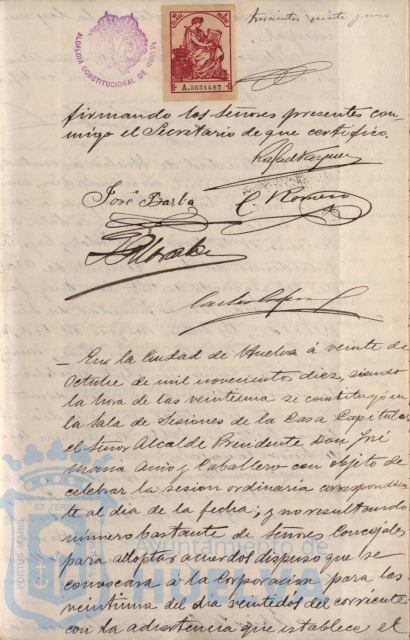 ALCALDIA CONSTITUCIONAL DE HUELVA
A.3531487
Trescientos veinte y uno
firmando los Señores presentes con-
migo el Secretario de que certifico.
Rafael Vazquez
José Barba
C. Romero
En la Ciudad de Huelva á veinte de
Octubre de mil novecientos diez, siendo
la hora de las veintiuna se constituyó en
la Sala de Sesiones de la Casa Capitular
el Señor Alcalde Presidente Don José
Maria Amo y Caballero con objeto de
celebrar la sesion ordinaria correspondien-
te al dia de la fecha; y no resultando
número bastante de Señores Concejales
para adoptar acuerdos dispuso que se
convocara á la Corporacion para las
veintiuna del dia veintidos del corriente
con la advertencia que establece el
ET TERRAE
PORTUS MARIS
Ayuntamiento de
HUELVA